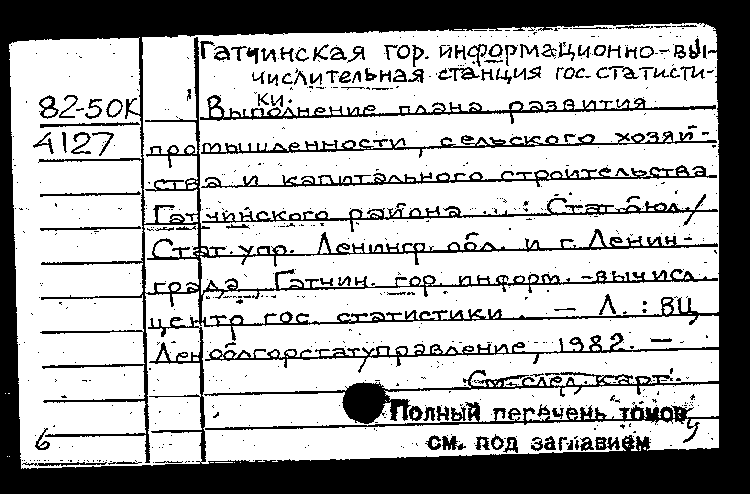 Гатчинская гор. информационно-вы-
числительная станция гос. статисти-
ки.
82-50К Выполнение плана развития
4127 промышленности, сельского хозяй-
ства и капитального строительства
Гатчинского района ... : Стат. бюл. /
Стат. упр. Ленингр. обл. и г. Ленин-
града, Гатчин. гор. информ.-вычисл.
центр гос. статистики. — Л. : ВЦ
Леноблгорстатуправление, 1982. —
См. след. карт.
Полный перечень томов
6 см. под заглавием